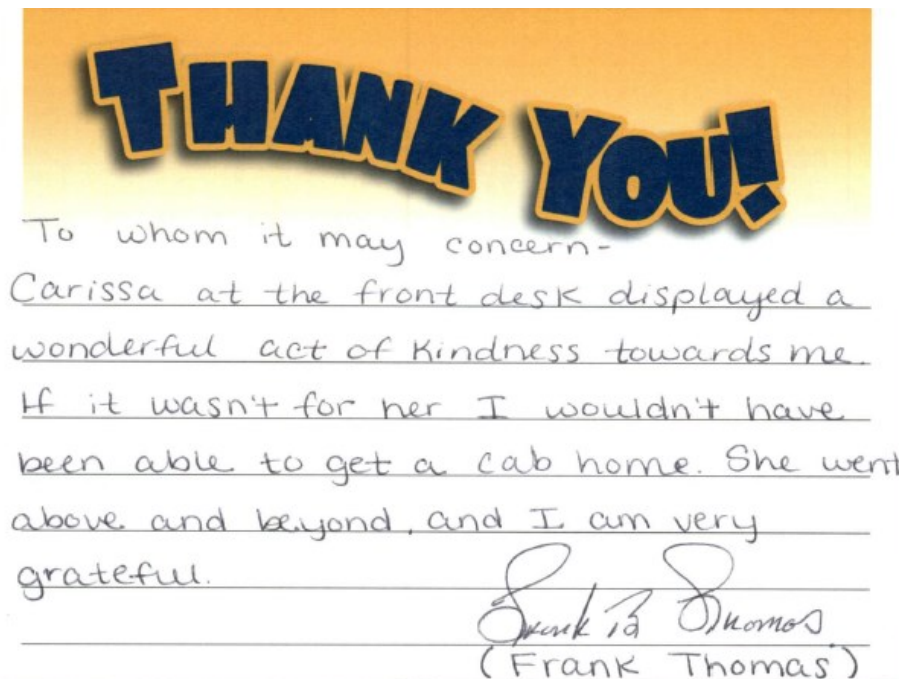 THANK YOU!
To whom it may concern-
Carissa at the front desk displayed a
wonderful act of kindness towards me.
If it wasn't for her I wouldn't have
been able to get a cab home. She went
above and beyond, and I am very
grateful.
Frank B Thomas
(Frank Thomas)